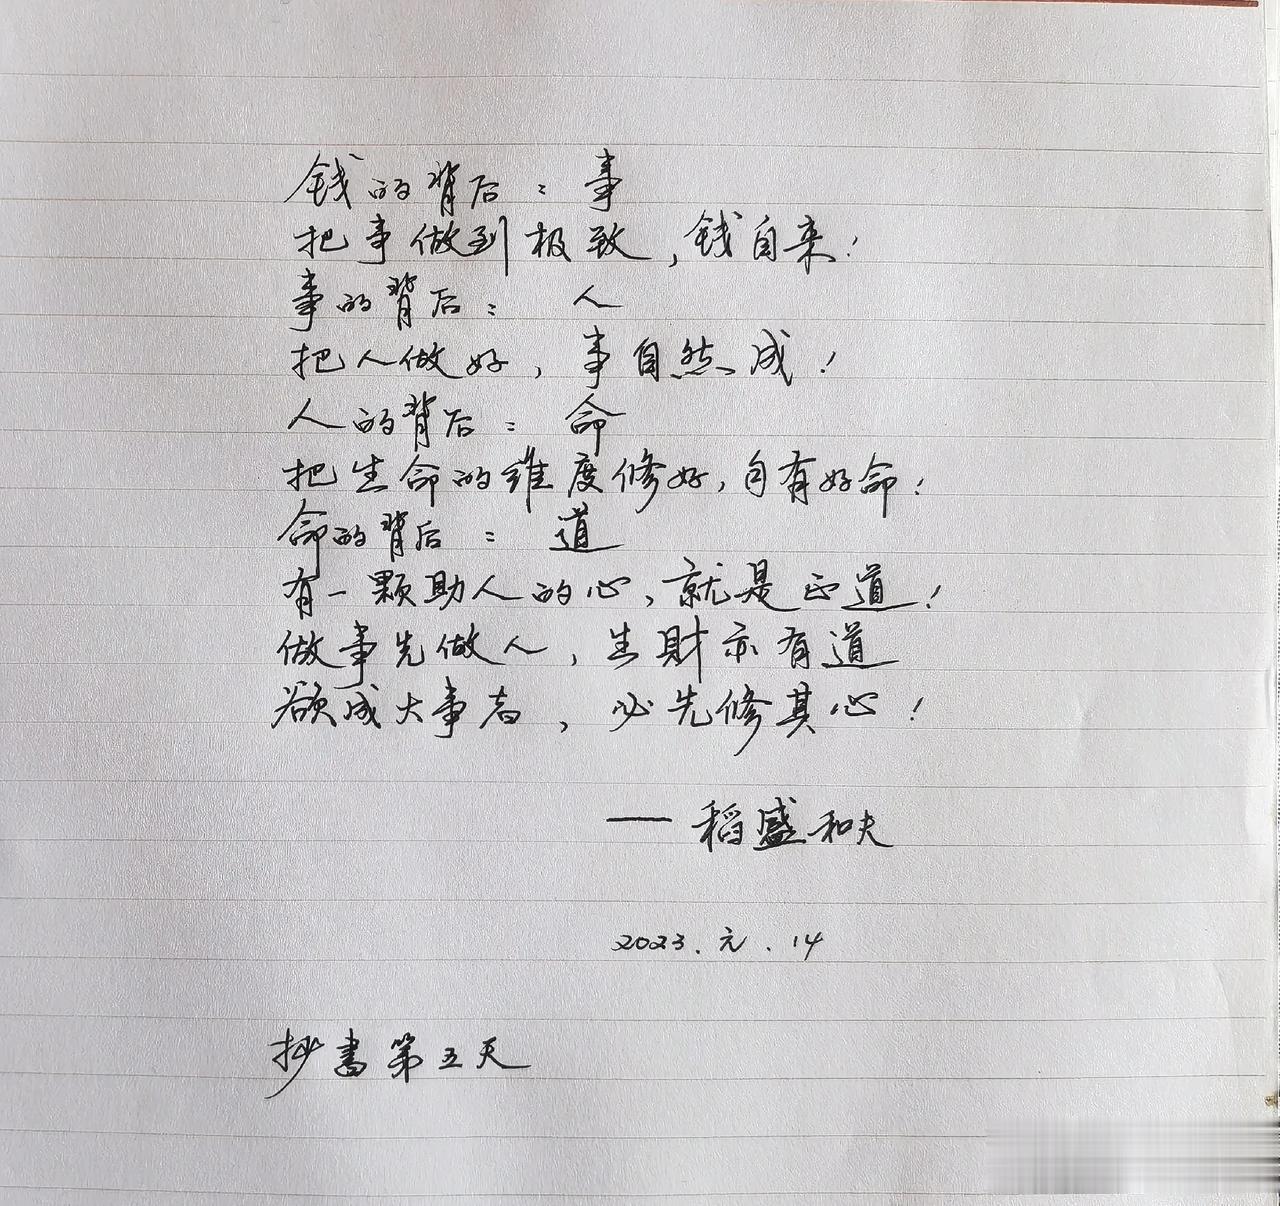 钱的背后：事
把事做到极致，钱自来！
事的背后：人
把人做好，事自然成！
人的背后：命
把生命的维度修好，自有好命！
命的背后：道
有一颗助人的心，就是正道！
做事先做人，生財亦有道
欲成大事者，必先修其心！
——稻盛和夫
2023.元.14
抄書第五天